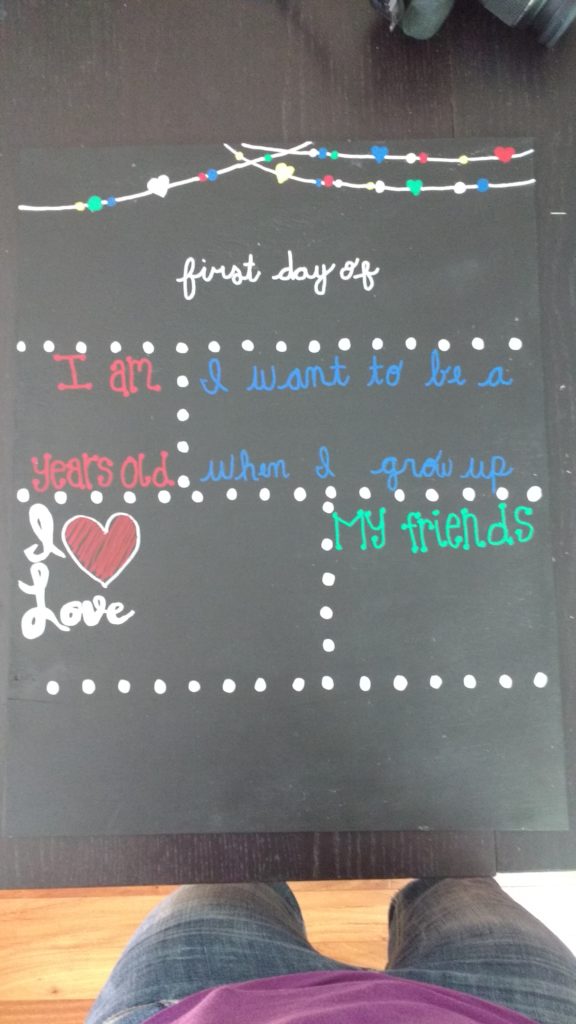 first day of
I am
years old
I want to be a
when I grow up
I
Love
My friends